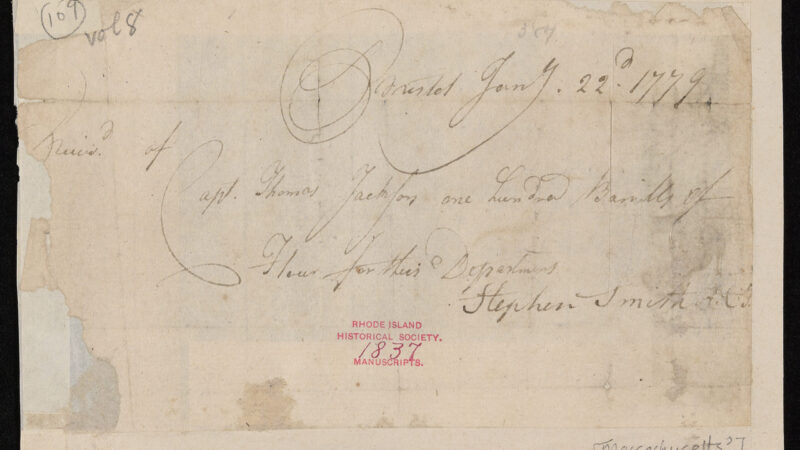 109
vol 8
Bristol Jany. 22d. 1779
Receiv'd of
Capt. Thomas Jackson one hundred Barrills of
Flour for this Department
Stephen Smith
RHODE ISLAND
HISTORICAL SOCIETY.
1837
MANUSCRIPTS.
Massachusetts